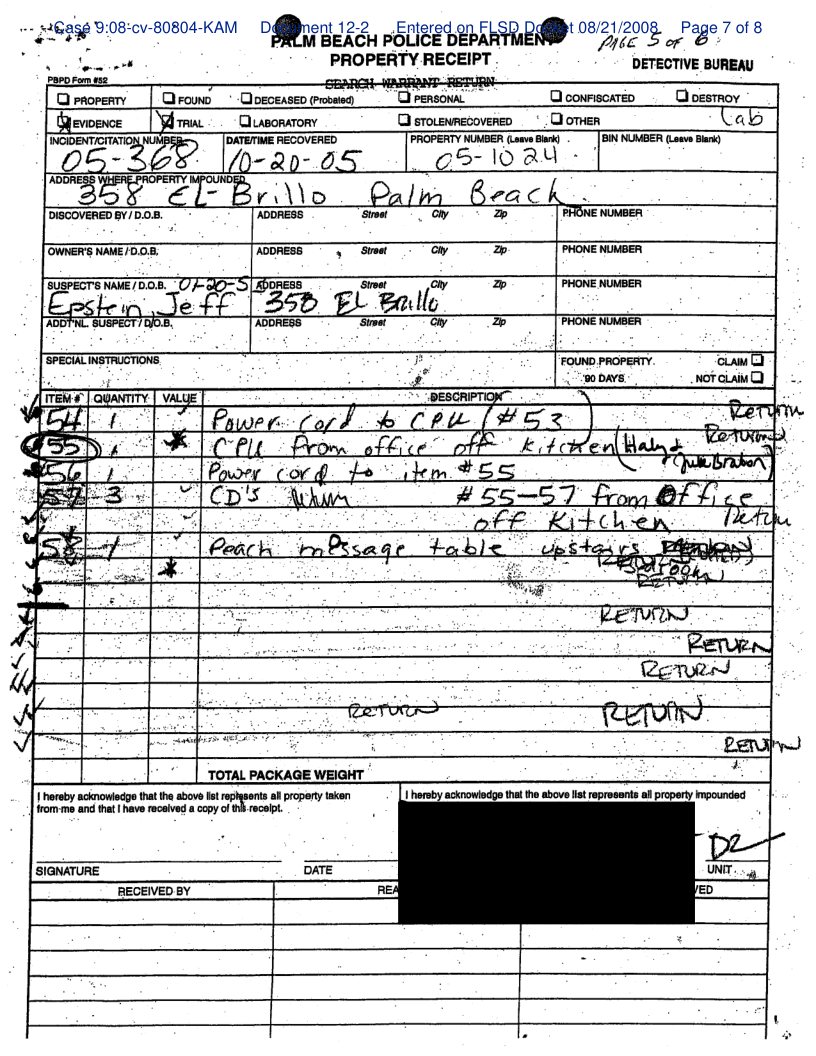 Case 9:08-cv-80804-KAM Document 12-2 Entered on FLSD Docket 08/21/2008 Page 7 of 8
PALM BEACH POLICE DEPARTMENT
PAGE 5 of 6
PROPERTY RECEIPT
DETECTIVE BUREAU
PBPD Form #52
SEARCH WARRANT RETURN
PROPERTY FOUND DECEASED (Probated) PERSONAL CONFISCATED DESTROY
EVIDENCE TRIAL LABORATORY STOLEN/RECOVERED OTHER Lab
INCIDENT/CITATION NUMBER DATE/TIME RECOVERED PROPERTY NUMBER (Leave Blank) BIN NUMBER (Leave Blank)
05-368 10-20-05 05-1024
ADDRESS WHERE PROPERTY IMPOUNDED
358 El-Brillo Palm Beach
DISCOVERED BY / D.O.B. ADDRESS Street City Zip PHONE NUMBER
OWNER'S NAME / D.O.B. ADDRESS Street City Zip PHONE NUMBER
SUSPECT'S NAME / D.O.B. 01-20-5 ADDRESS Street City Zip PHONE NUMBER
Epstein, Jeff 358 El Brillo
ADDT'NL. SUSPECT / D/O.B. ADDRESS Street City Zip PHONE NUMBER
SPECIAL INSTRUCTIONS FOUND PROPERTY CLAIM
90 DAYS NOT CLAIM
ITEM # QUANTITY VALUE DESCRIPTION
54 1 Power cord to CPU (#53) Return
55 1 CPU from office off kitchen Returned
56 1 Power cord to item #55
57 3 CD's Return #55-57 from Office
off Kitchen Return
58 1 Peach message table upstairs
RETURN
RETURN
RETURN
RETURN
RETURN RETURN
RETURN
TOTAL PACKAGE WEIGHT
I hereby acknowledge that the above list represents all property taken from me and that I have received a copy of this receipt.
I hereby acknowledge that the above list represents all property impounded
D2
SIGNATURE DATE UNIT
RECEIVED BY REA VED